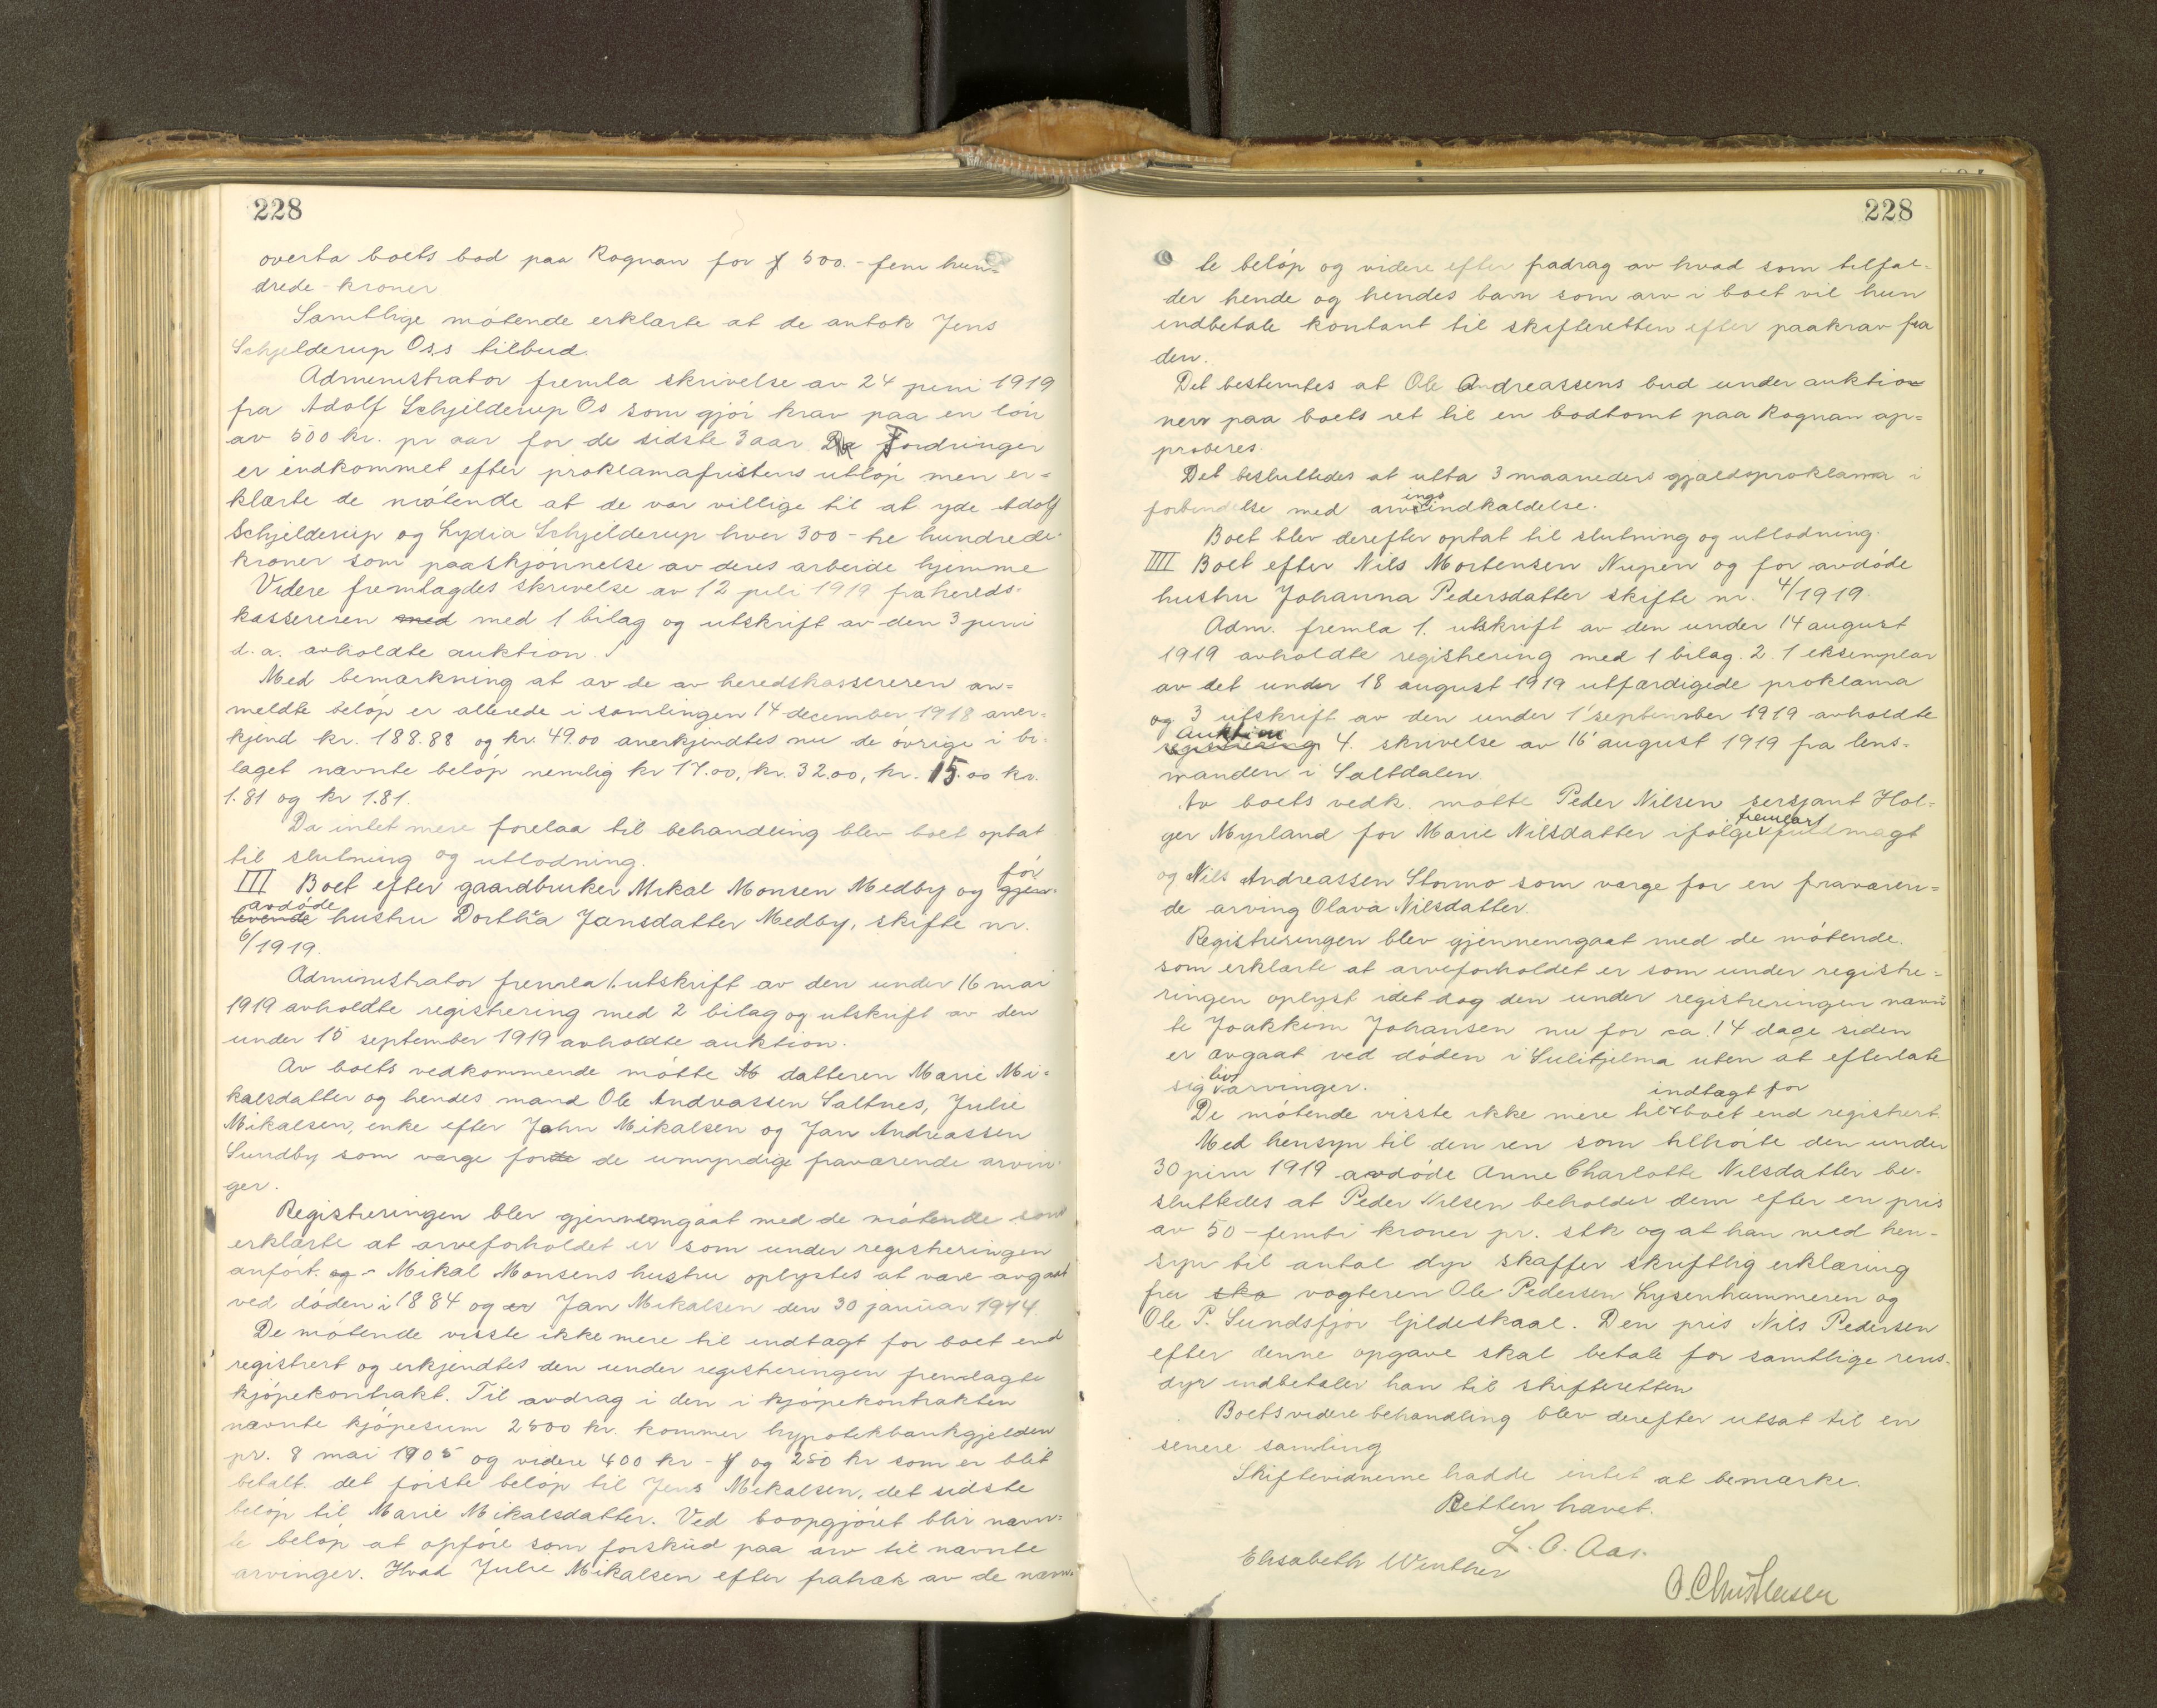 228
overta boets bod paa Rognan for 500.- fem hun=
drede - kroner
Samtlige mötende erklærte at de antok Jens
Schjelderup Os.s tilbud.
Administrator fremla skrivelse av 24 juni 1919
fra Adolf Schjelderup Os som gjör krav paa en lön
av 500 kr. pr aar for de sidste 3 aar. De Fordringer
er indkommet efter proklamafristens utlöp men er=
klærte de mötende at de var villige til at yde Adolf
Schjelderup og Lydia Schjelderup hver 300 - tre hundrede
kroner som paaskjönnelse av deres arbeide hjemme
Videre fremlagdes skrivelse av 12 juli 1919 fra hereds-
kassereren med med 1 bilag og utskrift av den 3 juni
d.a. avholdte auktion.
Med bemærkning at av de av heredskassereren an=
meldte belöp er allerede i samlingen 14 december 1918 aner-
kjend kr. 188.88 og kr. 49.00 anerkjendtes nu de övrige i bi-
laget nævnte belöp nemlig kr 17.00, kr. 32.00, kr. 15.00 kr.
1.81 og kr 1.81.
Da intet mere forelaa til behandling blev boet optat
til slutning og utlodning.
III Boet efter gaardbruker Mikal Monsen Medby og för gjen-
levende avdöde hustru Dorthea Jansdatter Medby, skifte nr.
6/1919.
Administrator fremla 1. utskrift av den under 16 mai
1919 avholdte registrering med 2 bilag og utskrift av den
under 15 september 1919 avholdte auktion.
Av boets vedkommende mötte M datteren Marie Mi=
kalsdatter og hendes mand Ole Andreassen Saltnes, Julie
Mikalsen, enke efter John Mikalsen og Jan Andreassen
Sundby som verge for de umyndige fraværende arvin-
ger.
Registreringen blev gjennemgaat med de mötende som
erklærte at arveforholdet er som under registreringen
anfört. og - Mikal Monsens hustru oplystes at være avgaat
ved döden i 1884 og er Jan Mikalsen den 30 januar 1914.
De mötende visste ikke mere til indtægt for boet end
registrert og erkjendtes den under registreringen fremlagte
kjöpekontrakt. Til avdrag i den i kjöpekontrakten
nævnte kjöpesum 2500 kr. kommer hypotekbankgjelden
pr. 8 mai 1905 og videre 400 kr - og 250 kr som er blit
betalt. det förste belöp til Jens Mikalsen, det sidste
belöp til Marie Mikalsdatter. Ved boopgjöret blir nævn=
te belöp at opföre som forskud paa arv til nævnte
arvinger. Hvad Julie Mikalsen efter fratræk av de nævn-
228
te belöp og videre efter fradrag av hvad som tilfal-
der hende og hendes barn som arv i boet vil hun
indbetale kontant til skifteretten efter paakrav fra
den.
Det bestemtes at Ole Andreassens bud under auktio
nen paa boets ret til en bodtomt paa Rognan ap=
proberes.
Det besluttedes at utta 3 maaneders gjældsproklama i
forbindelse med arvingsindkaldelse.
Boet blev derefter optat til slutning og utlodning.
IIII Boet efter Nils Mortensen Nupen og for avdöde
hustru Johanna Pedersdatter skifte nr. 4/1919.
Adm. fremla 1. utskrift av den under 14 august
1919 avholdte registrering med 1 bilag. 2. 1 eksemplar
av det under 18 august 1919 utfærdigede proklama
og 3 utskrift av den under 1' september 1919 avholdte
registrering Auktion 4. skrivelse av 16' august 1919 fra lens-
manden i Saltdalen
Av boets vedk. mötte Peder Nilsen, sersjant Hol=
ger Myrland for Marie Nilsdatter ifölge fremlagt fuldmagt
og Nils Andreassen Stormo som verge for en fraværen=
de arving Olava Nilsdatter.
Registreringen blev gjennemgaat med de mötende.
som erklærte at arveforholdet er som under registre=
ringen oplyst idet dog den under registreringen nævn
te Joakkim Johansen nu for ca. 14 dage siden
er avgaat ved döden i Sulitjelma uten at efterlate
sig livsarvinger.
De mötende visste ikke mere til indtægt for boet end registrert.
Med hensyn til den ren som tilhörte den under
30 juni 1919 avdöde Anne Charlotte Nilsdatter be-
sluttedes at Peder Nilsen beholder dem efter en pris
av 50 - femti kroner pr. stk og at han med hen-
syn til antal dyr skaffer skriftlig erklæring
fra ska vogteren Ole Pedersen Lysenhammeren og
Ole P. Sundsfjor Gjildeskaal. Den pris Nils Pedersen
efter denne opgave skal betale for samtlige rens-
dyr indbetaler han til skifteretten
Boets videre behandling blev derefter utsat til en
senere samling
Skiftevidnerne hadde intet at bemærke.
Retten hævet.
L. O. Aas.
Elisabeth Winther
O. Christensen